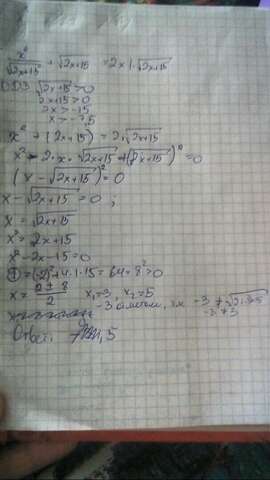 x² / √2x+15 + √2x+15 = 2x | · √2x+15
ОДЗ √2x+15 > 0
2x+15 > 0
2x > -15
x > -7,5
x² + (2x+15) = 2 · √2x+15
x² - 2 · x · √2x+15 + (√2x+15)² = 0
(x - √2x+15)² = 0
x - √2x+15 = 0 ;
x = √2x+15
x² = 2x+15
x² - 2x - 15 = 0
D = (-2)² + 4 · 1 · 15 = 64 = 8² > 0
x = 2 ± 8 / 2 x₁ = 3 , x₂ = 5
-3 -3 ≠
-3 ≠ 3
Ответ 5